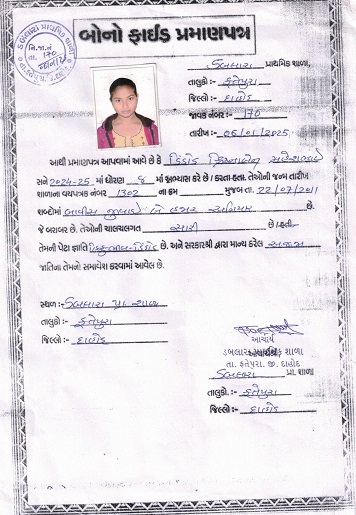 બોનો ફાઈડ પ્રમાણપત્ર
ડબલારા પ્રાથમિક શાળા,
તાલુકો:- ફતેપુરા
જિલ્લો:- દાહોદ
જાવક નંબર:- 170
તારીખ:- 06/01/2025
આથી પ્રમાણપત્ર આપવામાં આવે છે કે ડિંડોડ
સને 2024-25 માં ધોરણ 8 માં અભ્યાસ કરે છે / કરતા હતા. તેઓની જન્મ તારીખ
શાળાના વયપત્રક નંબર 1302 ના ક્રમ મુજબ તા. 22/07/2011
શબ્દોમાં બાવીસ જુલાઈ બે હજાર અગિયાર છે.
જે બરાબર છે. તેઓની ચાલચલગત સારી છે / હતી.
તેમની પેટા જ્ઞાતિ છે. અને સરકારશ્રી દ્વારા માન્ય કરેલ
જાતિના તેમનો સમાવેશ કરવામાં આવેલ છે.
સ્થળ:- ડબલારા પ્રા. શાળા
તાલુકો:- ફતેપુરા
જિલ્લો:- દાહોદ
આચાર્ય
ડબલારા શાળા
તા. ફતેપુરા. જી. દાહોદ
ડબલારા પ્રા. શાળા
તાલુકો:- ફતેપુરા
જિલ્લો:- દાહોદ